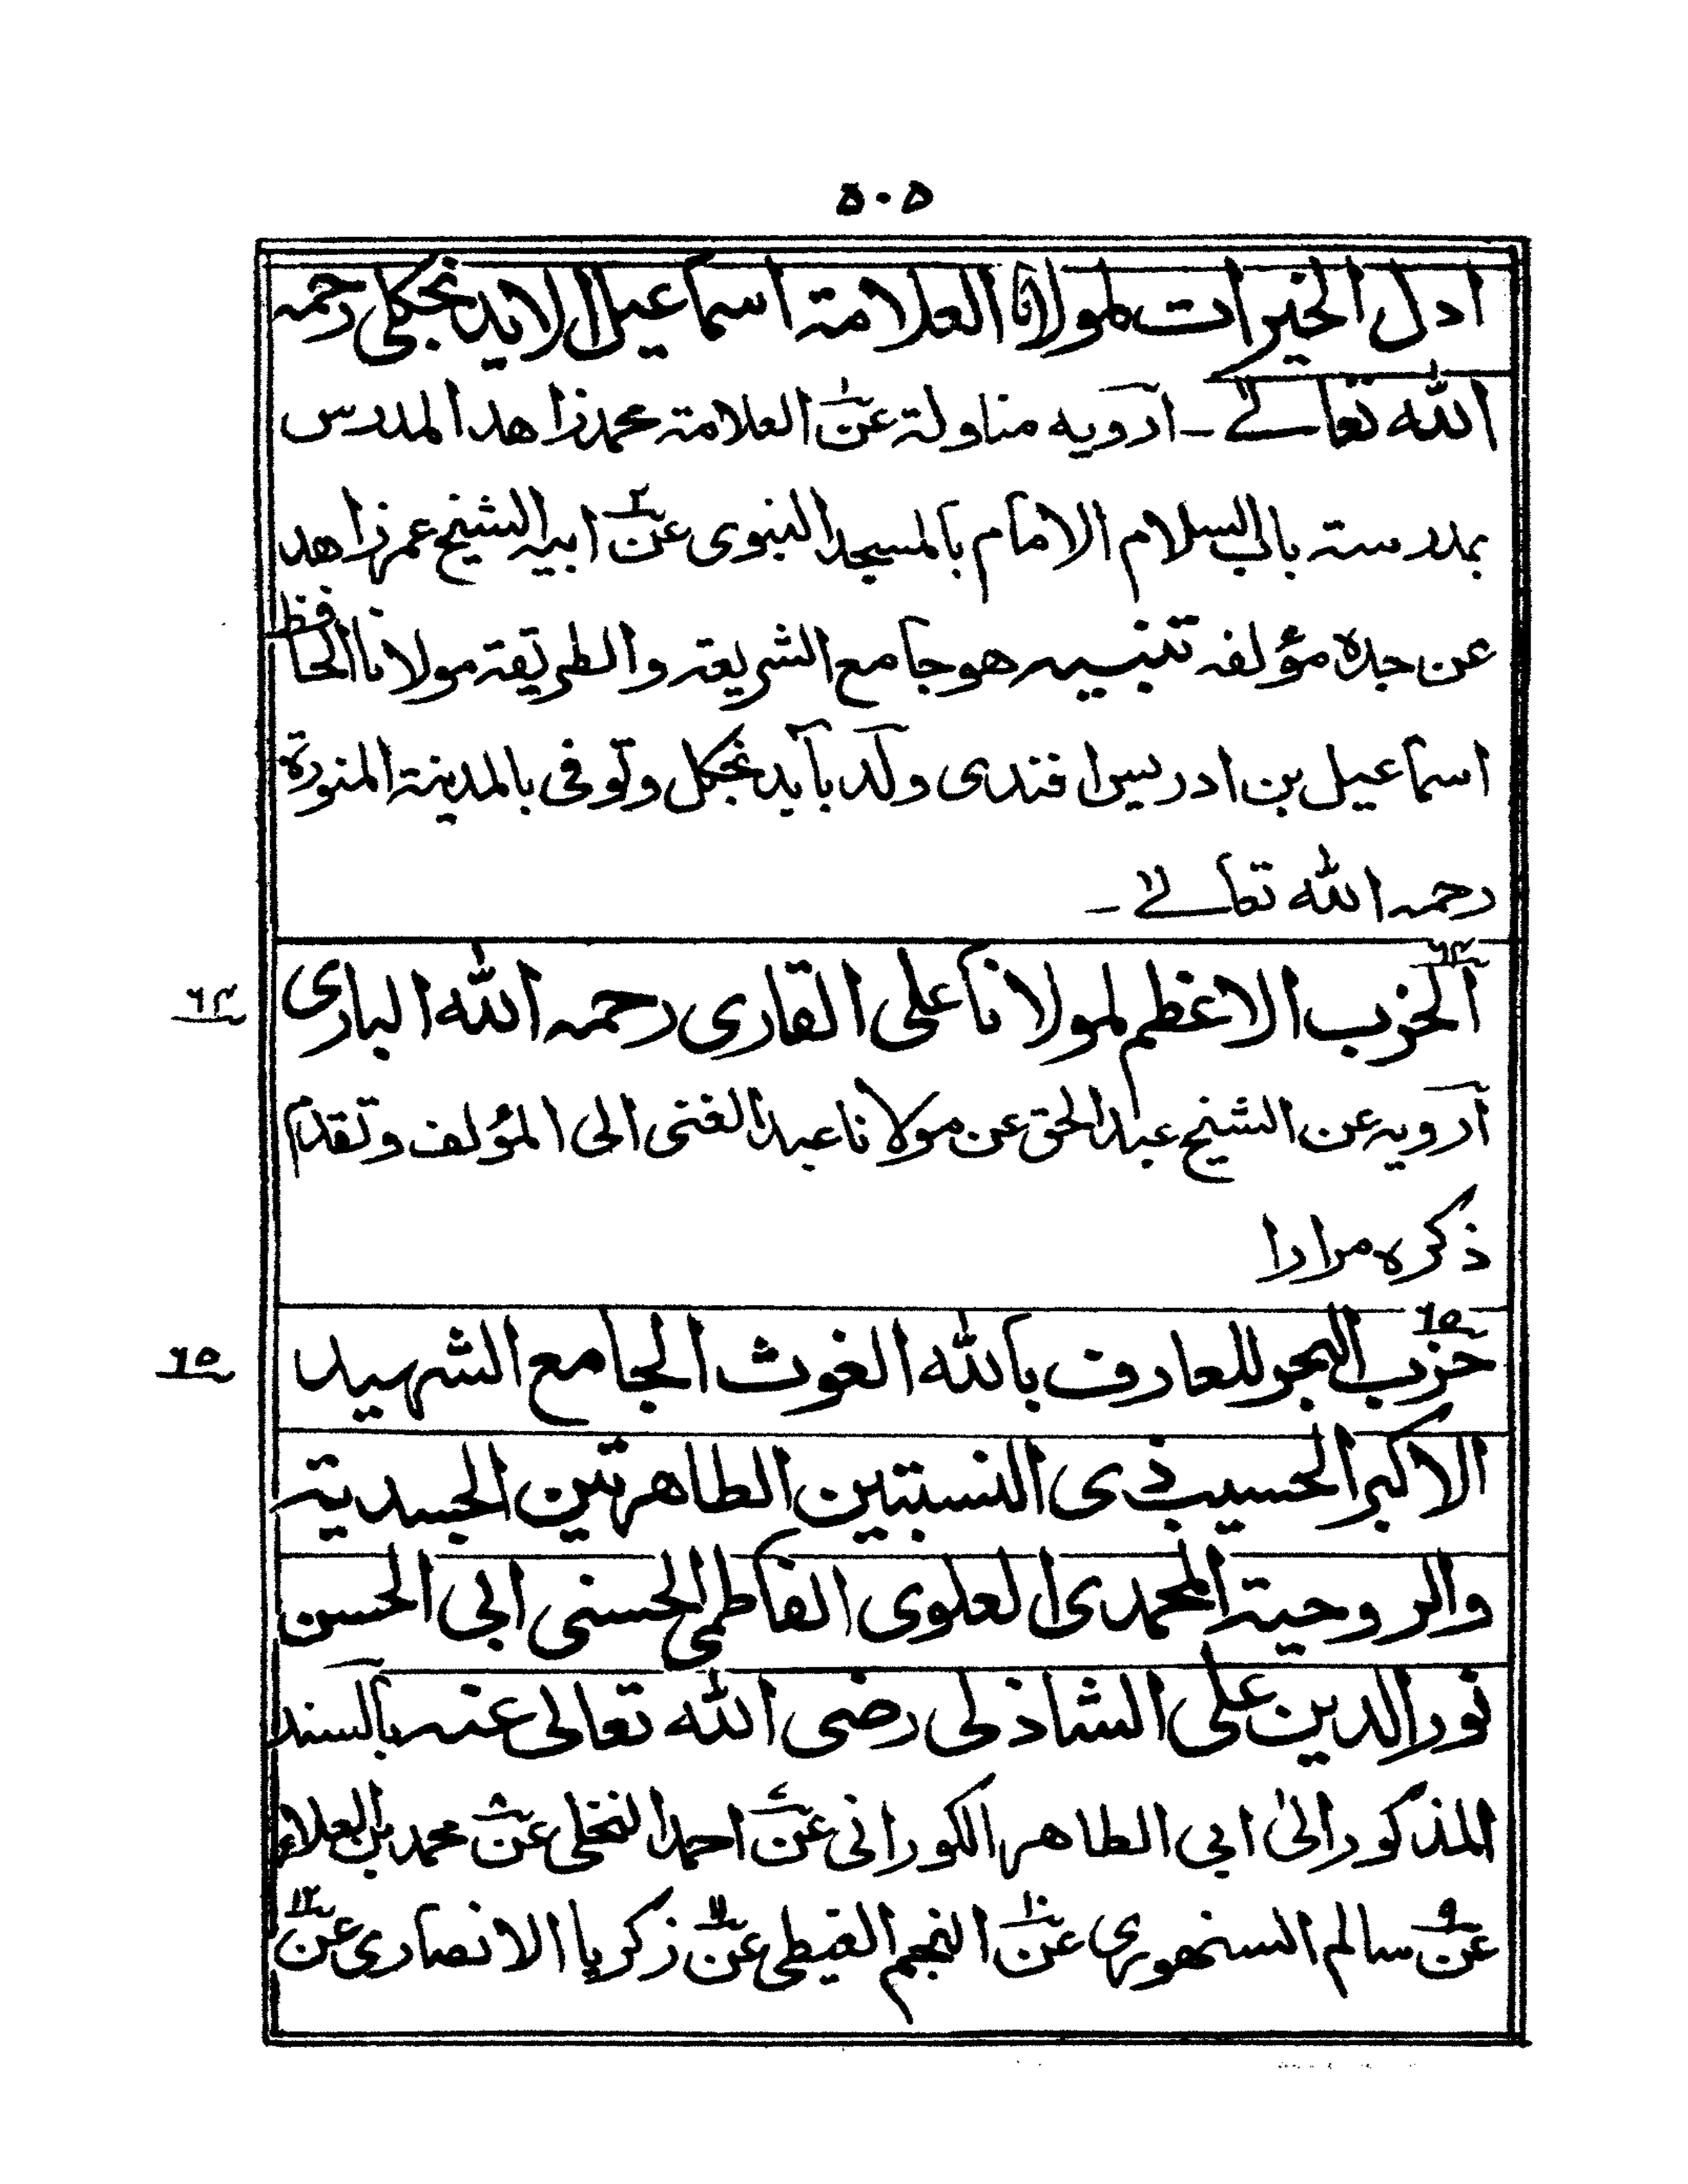 ٥٠٥
ادل الخيرات لمولانا العلامة اسماعيل الايدنجكلى رحمه
الله تعالے ـ ارويه مناولة عن١ العلامة محمد زاهد المدرس
بمدرسة باب السلام الامام بالمسجد النبوى عن٢ ابيه الشيخ عمر زاهد
عن جده مؤلفه تنبيه هو جامع الشريعة والطريقة مولانا الحافظ
اسماعيل بن ادريس افندى ولد بآيدنجكل وتوفى بالمدينة المنورة
رحمه الله تعالے ـ
٦٤
الحزب الاعظم لمولانا على القارى رحمه الله البارى
٦٤
ارويه عن الشيخ عبد الحق عن مولانا عبد الغنى الى المؤلف وتقدم
ذكره مرارا
٦٥
حزب البحر للعارف بالله الغوث الجامع الشهيد
٦٥
الاكبر الحسيب ذى النسبتين الطاهرتين الجسدية
والروحية المحمدى العلوى الفاطمى الحسنى ابى الحسن
نور الدين على الشاذلى رضى الله تعالى عنه بالسند
المذكور الى ابى الطاهر الكورانى عن٧ احمد النخلى عن٨ محمد بن العلاء
عن٩ سالم السنهورى عن١٠ النجم الغيطى عن١١ زكريا الانصارى عن١٢